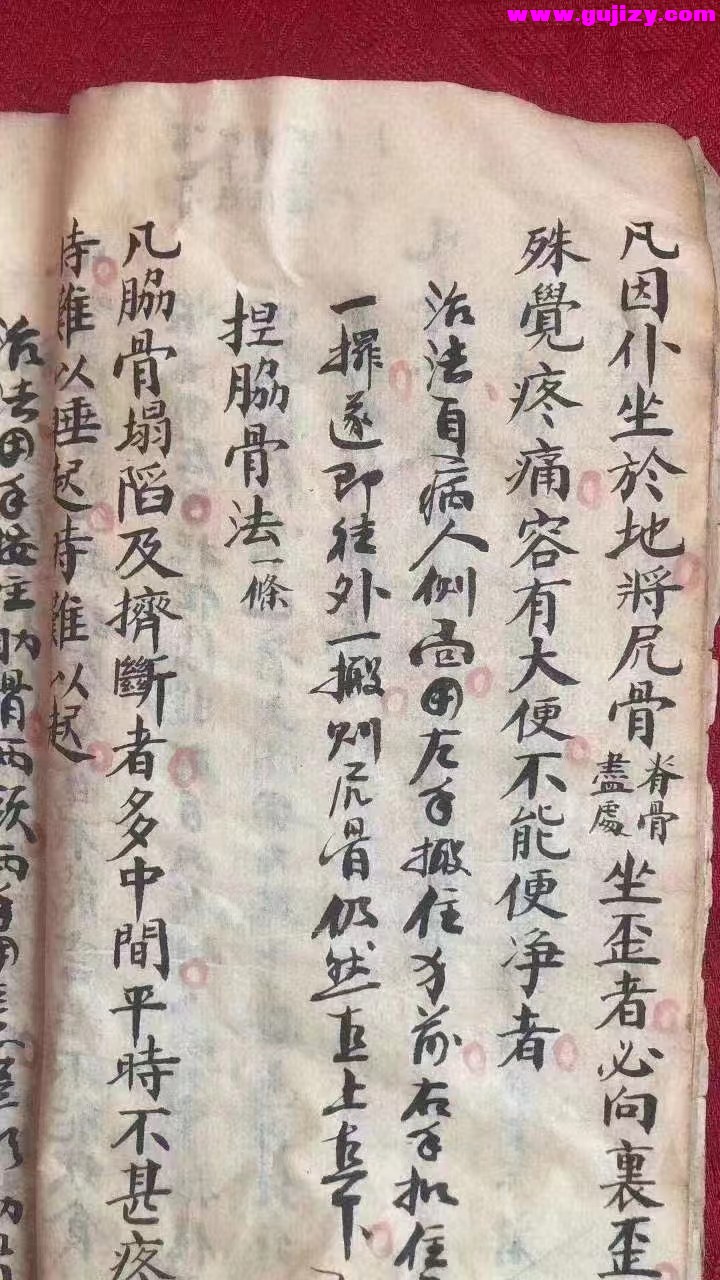 www.gujizy.com
凡因仆坐於地將尻骨脊骨盡處坐歪者必向裏歪
殊覺疼痛容有大便不能便净者
治法自病人側面用左手搬住身前右手扣住
一擺遂即往外一搬则尻骨仍然直上直下
捏脇骨法一條
凡脇骨塌陷及擠斷者多中間平時不甚疼
時難以睡起時難以起
治法用手按住肋骨两頭两手用